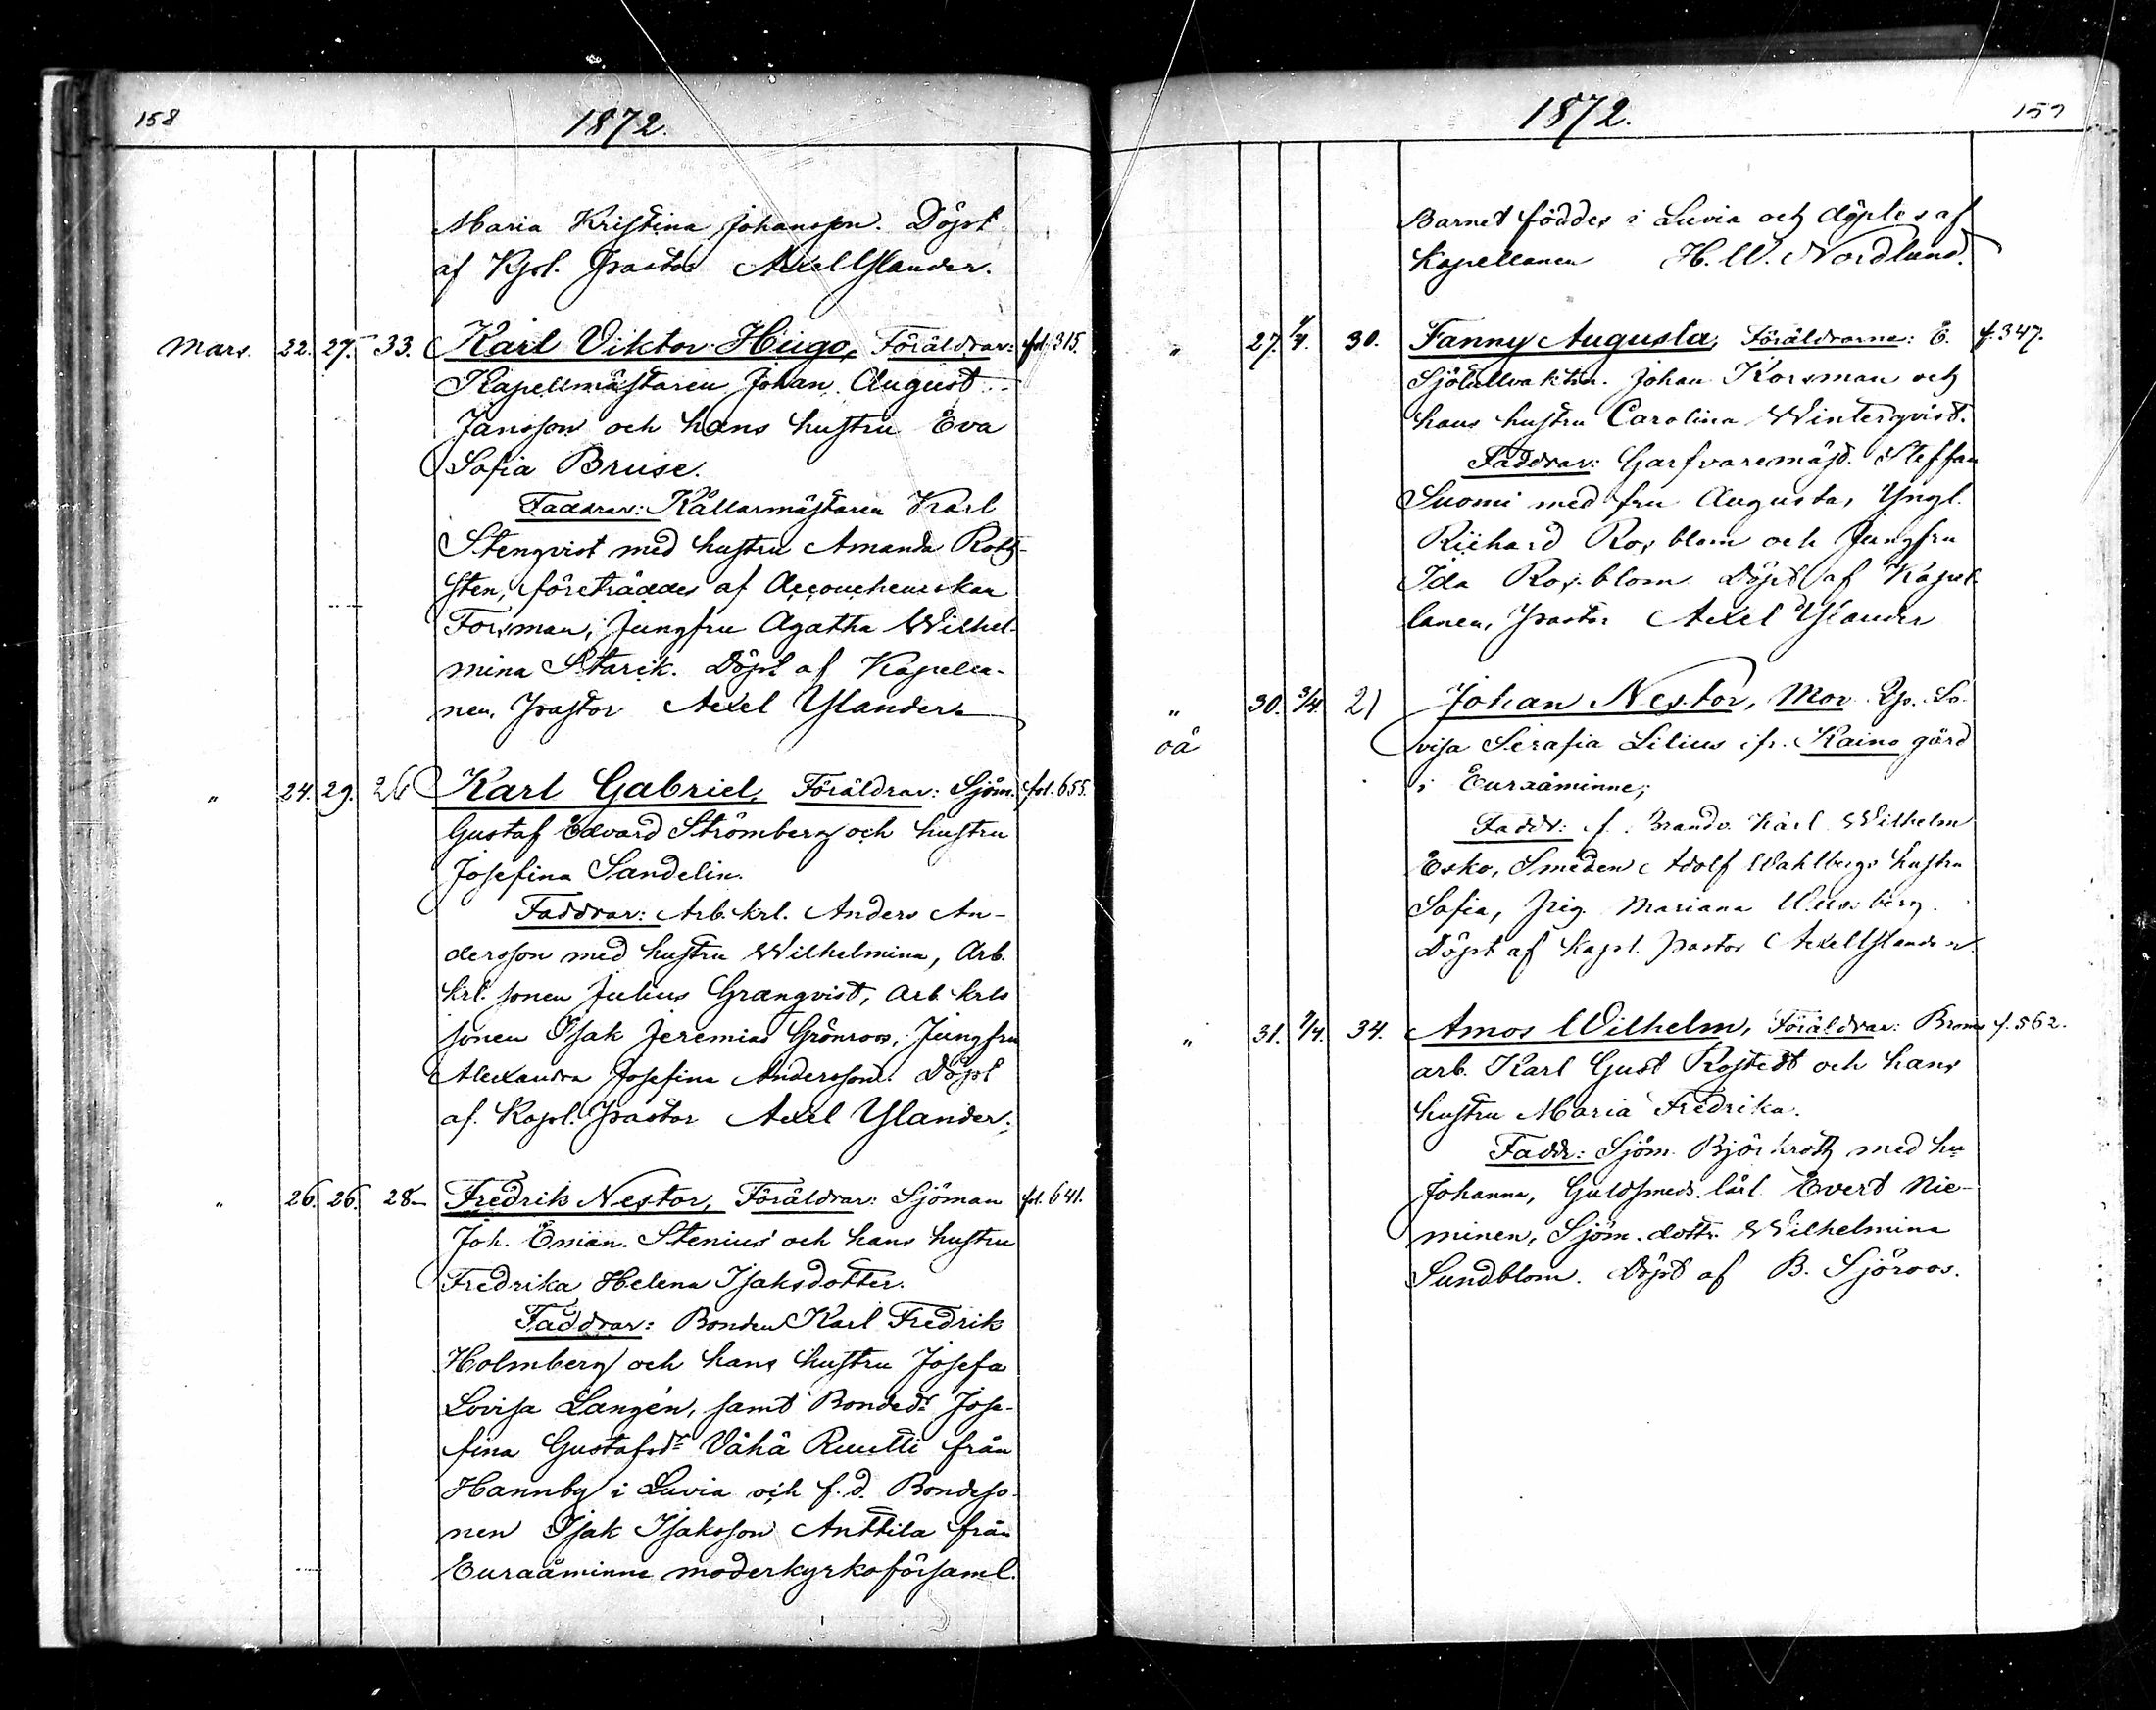 158
1872.
Maria Kristina Johansson. Döpt
af Kpl. Pastor Axel Ylander.
Mars. 22. 27. 33. Karl Viktor Hugo, Föräldrar: fol. 315.
Kapellmästaren Johan August
Jansson och hans hustru Eva
Sofia Bruse.
Faddrar: Källarmästaren Karl
Stenqvist med hustru Amanda Roth-
sten, företräddes af Accoucheuskan
Forsman, Jungfru Agatha Wilhel-
mina Starck. Döpt af Kapella-
nen, Pastor Axel Ylander
" 24. 29. 26 Karl Gabriel, Föräldrar: Sjöm. fol. 655.
Gustaf Edvard Strömberg och hustru
Josefina Sandelin.
Faddrar: Arb.krl. Anders An-
dersson med hustru Wilhelmina, Arb.
krl. sonen Julius Granqvist, arb. krls
sonen Isak Jeremias Grönroos, Jungfru
Alexandra Josefina Andersson. Döpt
af Kapl. Pastor Axel Ylander.
" 26. 26. 28 Fredrik Nestor, Föräldrar: Sjöman fol. 641.
Joh. Eman. Stenius och hans hustru
Fredrika Helena Isaksdotter.
Faddrar: Bonden Karl Fredrik
Holmberg och hans hustru Josefa
Lovisa Langén, samt Bondedr Jose-
fina Gustafsdr Vähä Ruutti från
Hannby i Luvia och f.d. Bondeso-
nen Isak Isaksson Anttila från
Euraåminne moderkyrkoförsaml.
1872.
159
Barnet föddes i Luvia och döptes af
Kapellanen H. W. Nordlund.
" 27. 1/4. 30. Fanny Augusta, Föräldrarne: E. f. 347.
Sjötullvaktm. Johan Korsman och
hans hustru Carolina Winterqvist.
Faddrar: Garfvaremäst. Steffan
Suomi med fru Augusta, Yngl.
Richard Rosblom och Jungfru
Ida Rosblom Döpt af Kapel-
lanen, Pastor Axel Ylander
" 30. 3/4. 21 Johan Nestor, Mor Lo-
oä
visa Serafia Lilius ifr. Kaino gård
i Euraåminne;
Faddr: f. Brandv. Karl Wilhelm
Esko, Smeden Adolf Wahlbergs hustru
Sofia, Pig. Mariana
Döpt af Kapl. pastor Axel Ylander.
" 31. 7/4. 34. Amos Wilhelm, Föräldrar: Broms f. 562.
arb. Karl Gust Rostedt och hans
hustru Maria Fredrika.
Faddr: Sjöm. Björkroth med hu
Johanna, Guldsmeds lärl. Evert Nie-
minen, Sjöm. dottr. Wilhelmina
Sundblom. Döpt af B. Sjöroos.